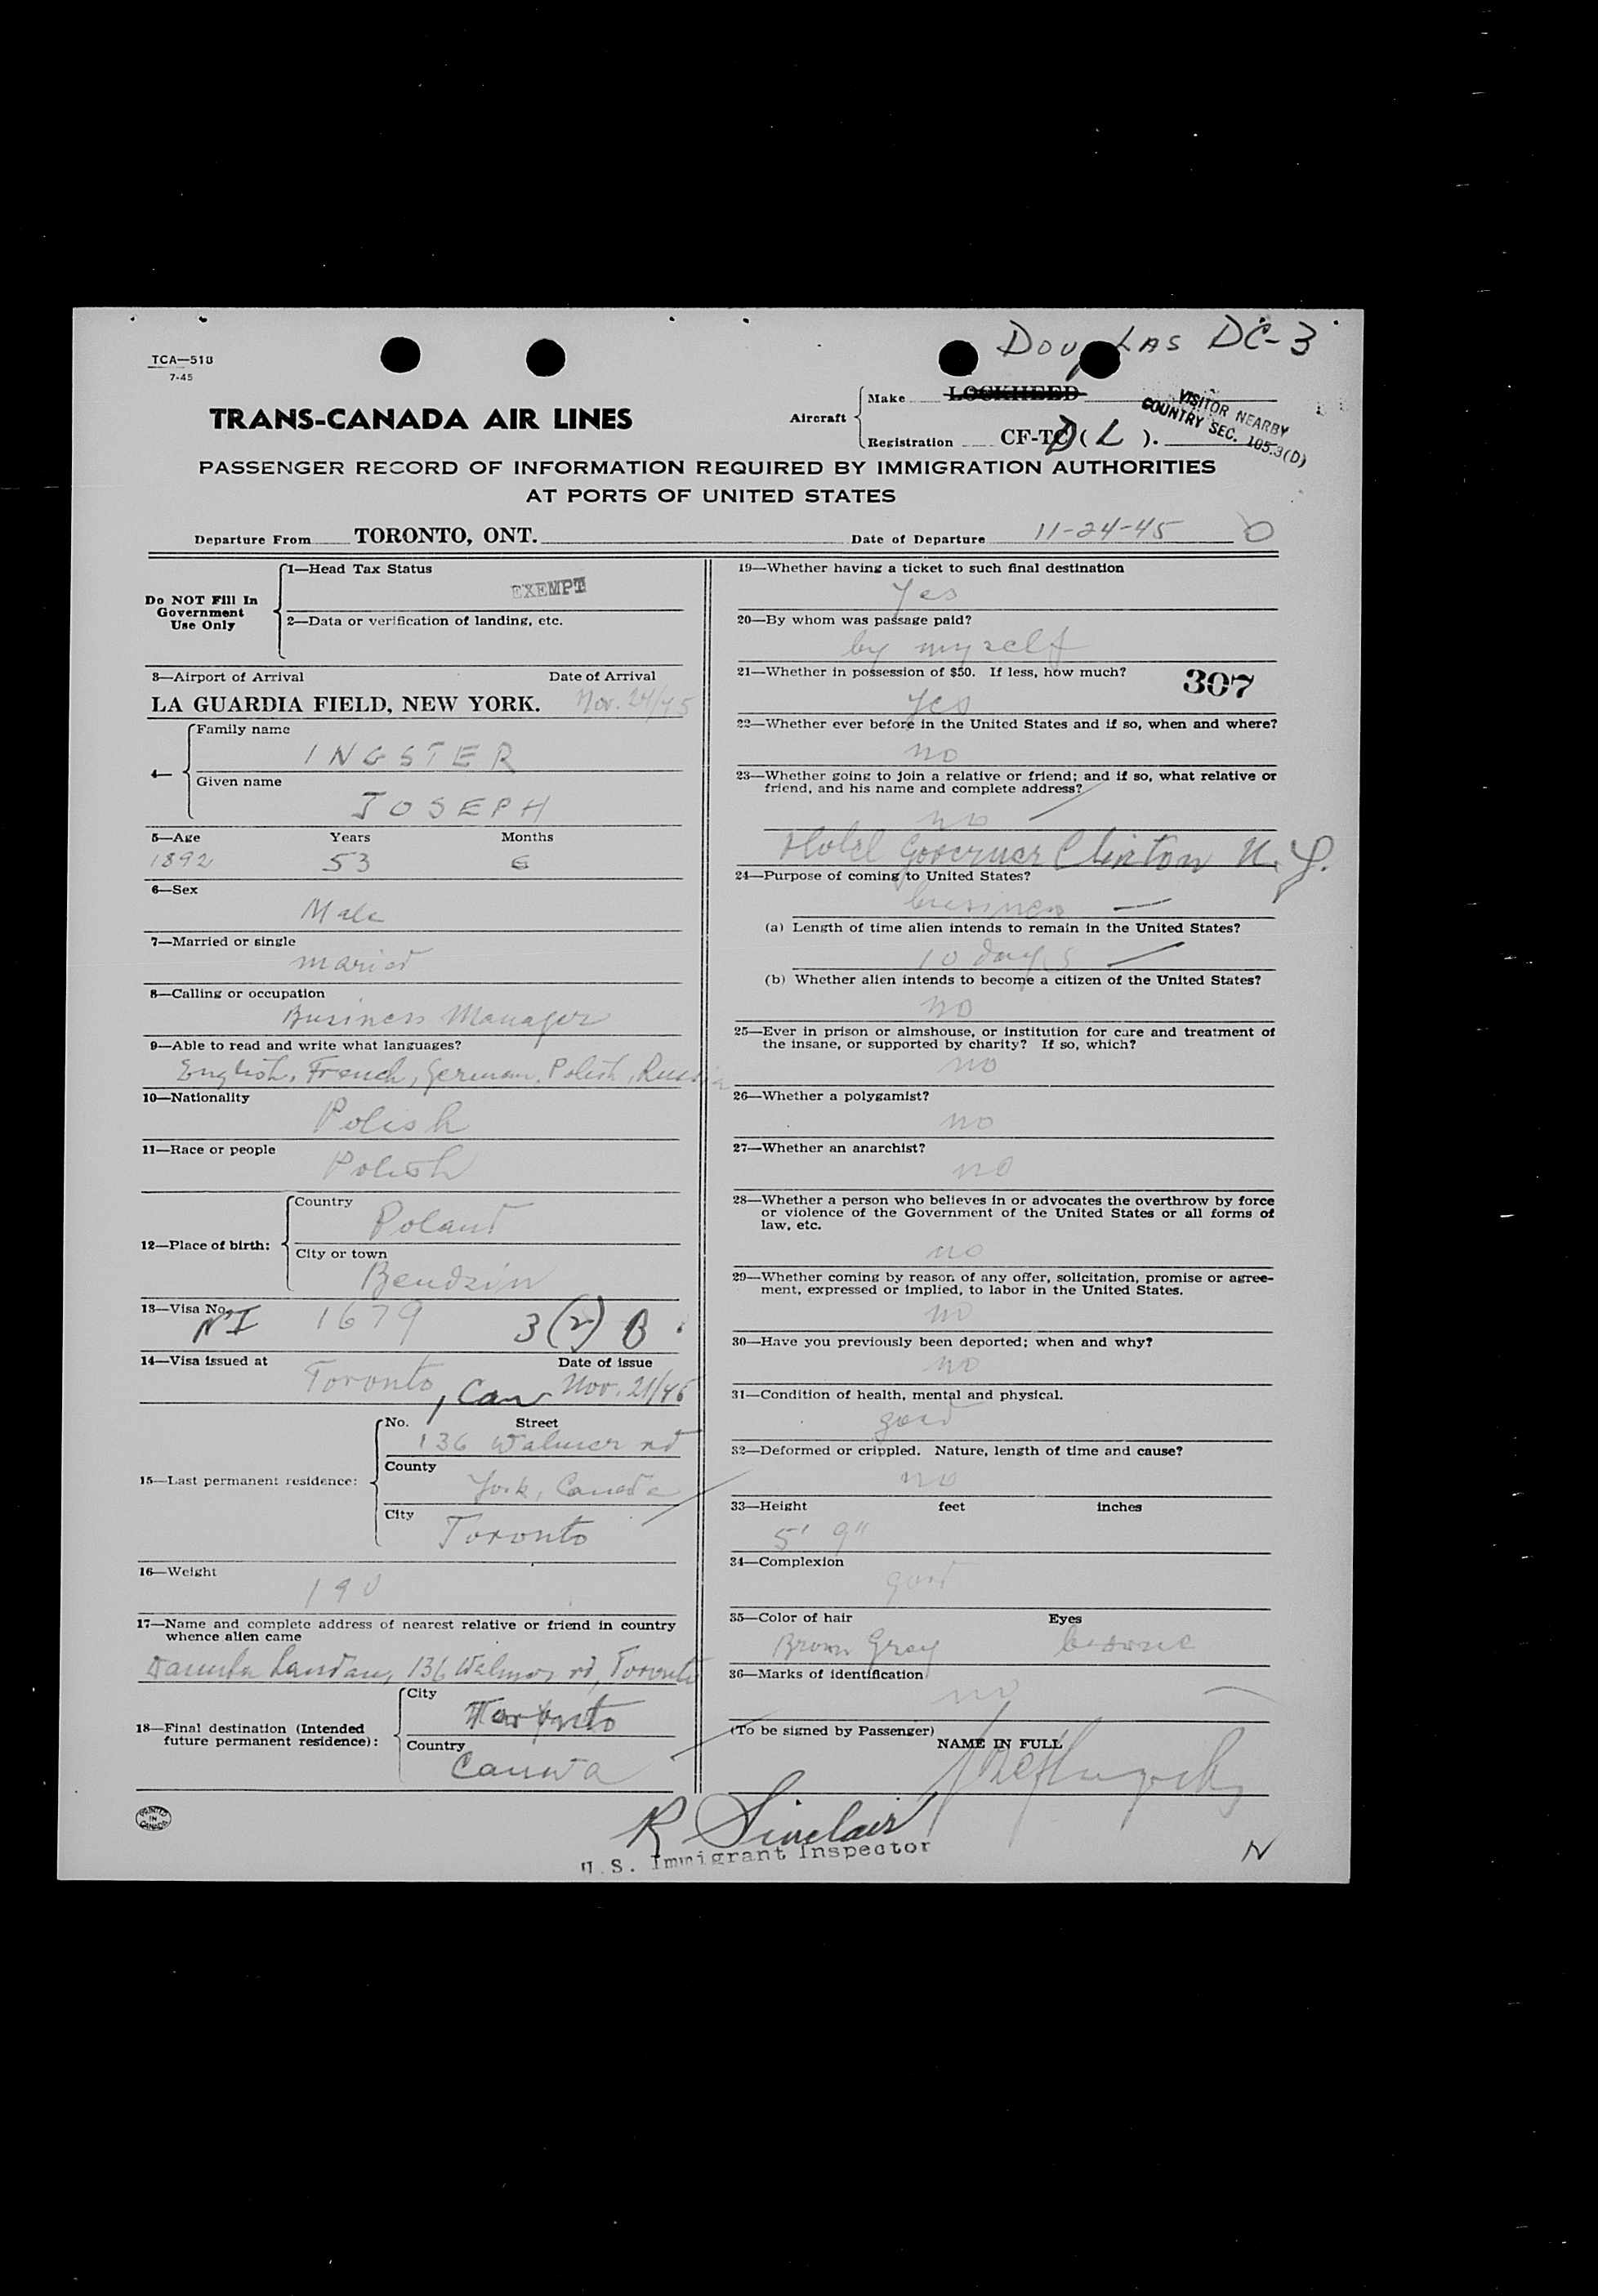 DOUGLAS DC-3
TCA—518
7-45
TRANS-CANADA AIR LINES
Aircraft
Make LOCKHEED
Registration CF-TCD ( L ).
VISITOR NEARBY
COUNTRY SEC. 105.3(D)
PASSENGER RECORD OF INFORMATION REQUIRED BY IMMIGRATION AUTHORITIES
AT PORTS OF UNITED STATES
Departure From TORONTO, ONT.
Date of Departure 11-24-45
Do NOT Fill In
Government
Use Only
1—Head Tax Status
EXEMPT
2—Data or verification of landing, etc.
3—Airport of Arrival Date of Arrival
LA GUARDIA FIELD, NEW YORK. Nov. 24/45
4—
Family name
INGSTER
Given name
JOSEPH
5—Age Years Months
1892 53 6
6—Sex
Male
7—Married or single
maried
8—Calling or occupation
Business Manager
9—Able to read and write what languages?
English, French, German, Polish, Russian
10—Nationality
Polish
11—Race or people
Polish
12—Place of birth:
Country
Poland
City or town
Bendzin
13—Visa No.
NI 1679 3(2) B
14—Visa issued at Date of issue
Toronto, Can Nov. 21/45
15—Last permanent residence:
No. Street
136 Walmer rd
County
York, Canada
City
Toronto
16—Weight
190
17—Name and complete address of nearest relative or friend in country
whence alien came
Landau, 136 Walmer rd, Toronto
18—Final destination (Intended
future permanent residence):
City
Toronto
Country
Canada
PRINTED
IN
CANADA
19—Whether having a ticket to such final destination
Yes
20—By whom was passage paid?
by myself
21—Whether in possession of $50. If less, how much?
307
yes
22—Whether ever before in the United States and if so, when and where?
no
23—Whether going to join a relative or friend; and if so, what relative or
friend, and his name and complete address?
no
Hotel Governer Clinton N.Y.
24—Purpose of coming to United States?
business
(a) Length of time alien intends to remain in the United States?
10 days
(b) Whether alien intends to become a citizen of the United States?
no
25—Ever in prison or almshouse, or institution for care and treatment of
the insane, or supported by charity? If so, which?
no
26—Whether a polygamist?
no
27—Whether an anarchist?
no
28—Whether a person who believes in or advocates the overthrow by force
or violence of the Government of the United States or all forms of
law, etc.
no
29—Whether coming by reason of any offer, solicitation, promise or agree-
ment, expressed or implied, to labor in the United States.
no
30—Have you previously been deported; when and why?
no
31—Condition of health, mental and physical.
good
32—Deformed or crippled. Nature, length of time and cause?
no
33—Height feet inches
5' 9"
34—Complexion
good
35—Color of hair Eyes
Brown Gray browne
36—Marks of identification
no
(To be signed by Passenger)
NAME IN FULL
R Sinclair
U.S. Immigrant Inspector
N